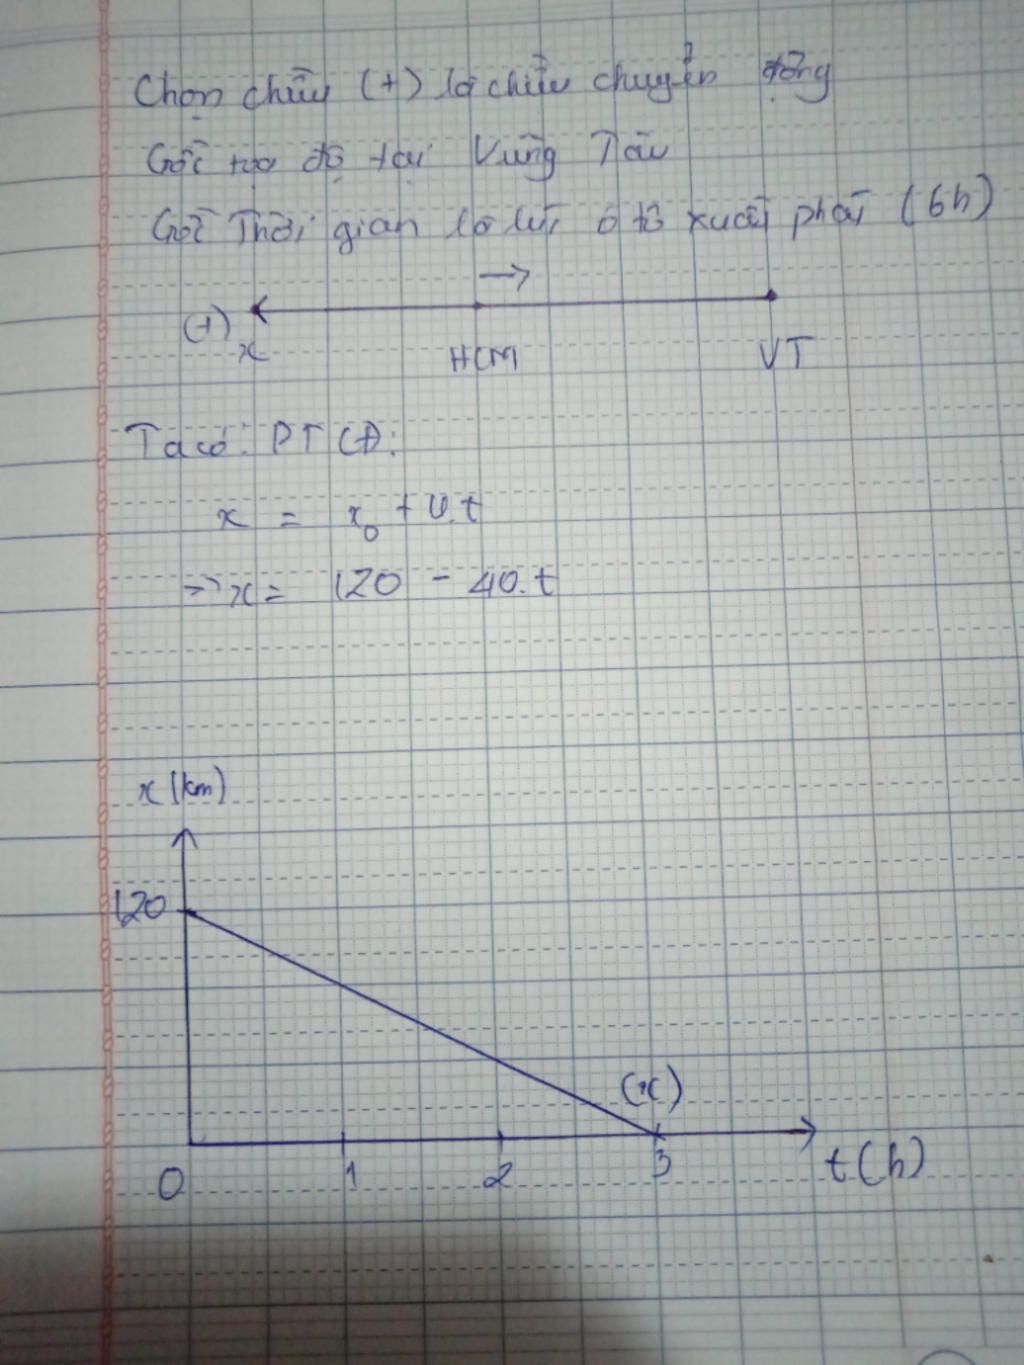 Chọn chiều (+) là chiều chuyển động
Gốc tọa độ tại Vũng Tàu
Gốc Thời gian là lúc ô tô xuất phát (6h)
(+)
x
HCM
VT
Ta có: PTCĐ:
x = x₀ + v.t
=> x = 120 - 40.t
x (km)
120
(x)
0
1
2
3
t (h)